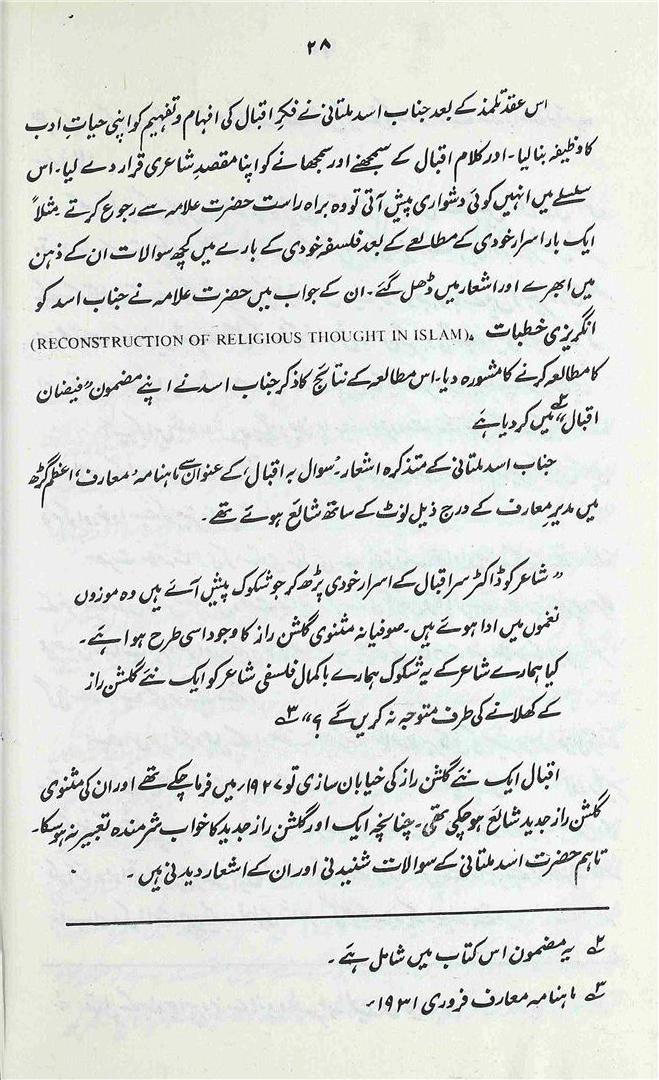 ۲۸
اس عقد تلمذ کے بعد جناب اسد ملتانی نے فکرِ اقبال کی افہام و تفہیم کو اپنی حیات ادب
کا وظیفہ بنا لیا۔ اور کلام اقبال کے سمجھنے اور سمجھانے کو اپنا مقصدِ شاعری قرار دے لیا۔ اس
سلسلے میں انہیں کوئی دشواری پیش آتی تو وہ براہ راست حضرت علامہ سے رجوع کرتے مثلاً
ایک بار اسرار خودی کے مطالعے کے بعد فلسفہ خودی کے بارے میں کچھ سوالات ان کے ذہن
میں ابھرے اور اشعار میں ڈھل گئے۔ ان کے جواب میں حضرت علامہ نے جناب اسد کو
انگریزی خطبات (RECONSTRUCTION OF RELIGIOUS THOUGHT IN ISLAM)
کا مطالعہ کرنے کا مشورہ دیا۔ اس مطالعہ کے نتائج کا ذکر جناب اسد نے اپنے مضمون "فیضان
اقبال"۲؎ میں کر دیا ہے
جناب اسد ملتانی کے متذکرہ اشعار۔ 'سوال بہ اقبال' کے عنوان سے ماہنامہ 'معارف' اعظم گڑھ
میں مدیرِ معارف کے درج ذیل نوٹ کے ساتھ شائع ہوئے تھے۔
"شاعر کو ڈاکٹر سر اقبال کے اسرار خودی پڑھ کر جو شکوک پیش آئے ہیں وہ موزوں
نغموں میں ادا ہوئے ہیں۔ صوفیانہ مثنوی گلشن راز کا وجود اسی طرح ہوا ہے۔
کیا ہمارے شاعر کے یہ شکوک ہمارے باکمال فلسفی شاعر کو ایک نئے گلشن راز
کے کھلانے کی طرف متوجہ نہ کریں گے ؟" ۳؎
اقبال ایک نئے گلشن راز کی خیابان سازی تو ۱۹۲۷ء میں فرما چکے تھے اور ان کی مثنوی
گلشن راز جدید شائع ہو چکی تھی۔ چنانچہ ایک اور گلشن راز جدید کا خواب شرمندہ تعبیر نہ ہو سکا۔
تاہم حضرت اسد ملتانی کے سوالات شنیدنی اور ان کے اشعار دیدنی ہیں۔
۲؎ یہ مضمون اس کتاب میں شامل ہے۔
۳؎ ماہنامہ معارف فروری ۱۹۳۱ء